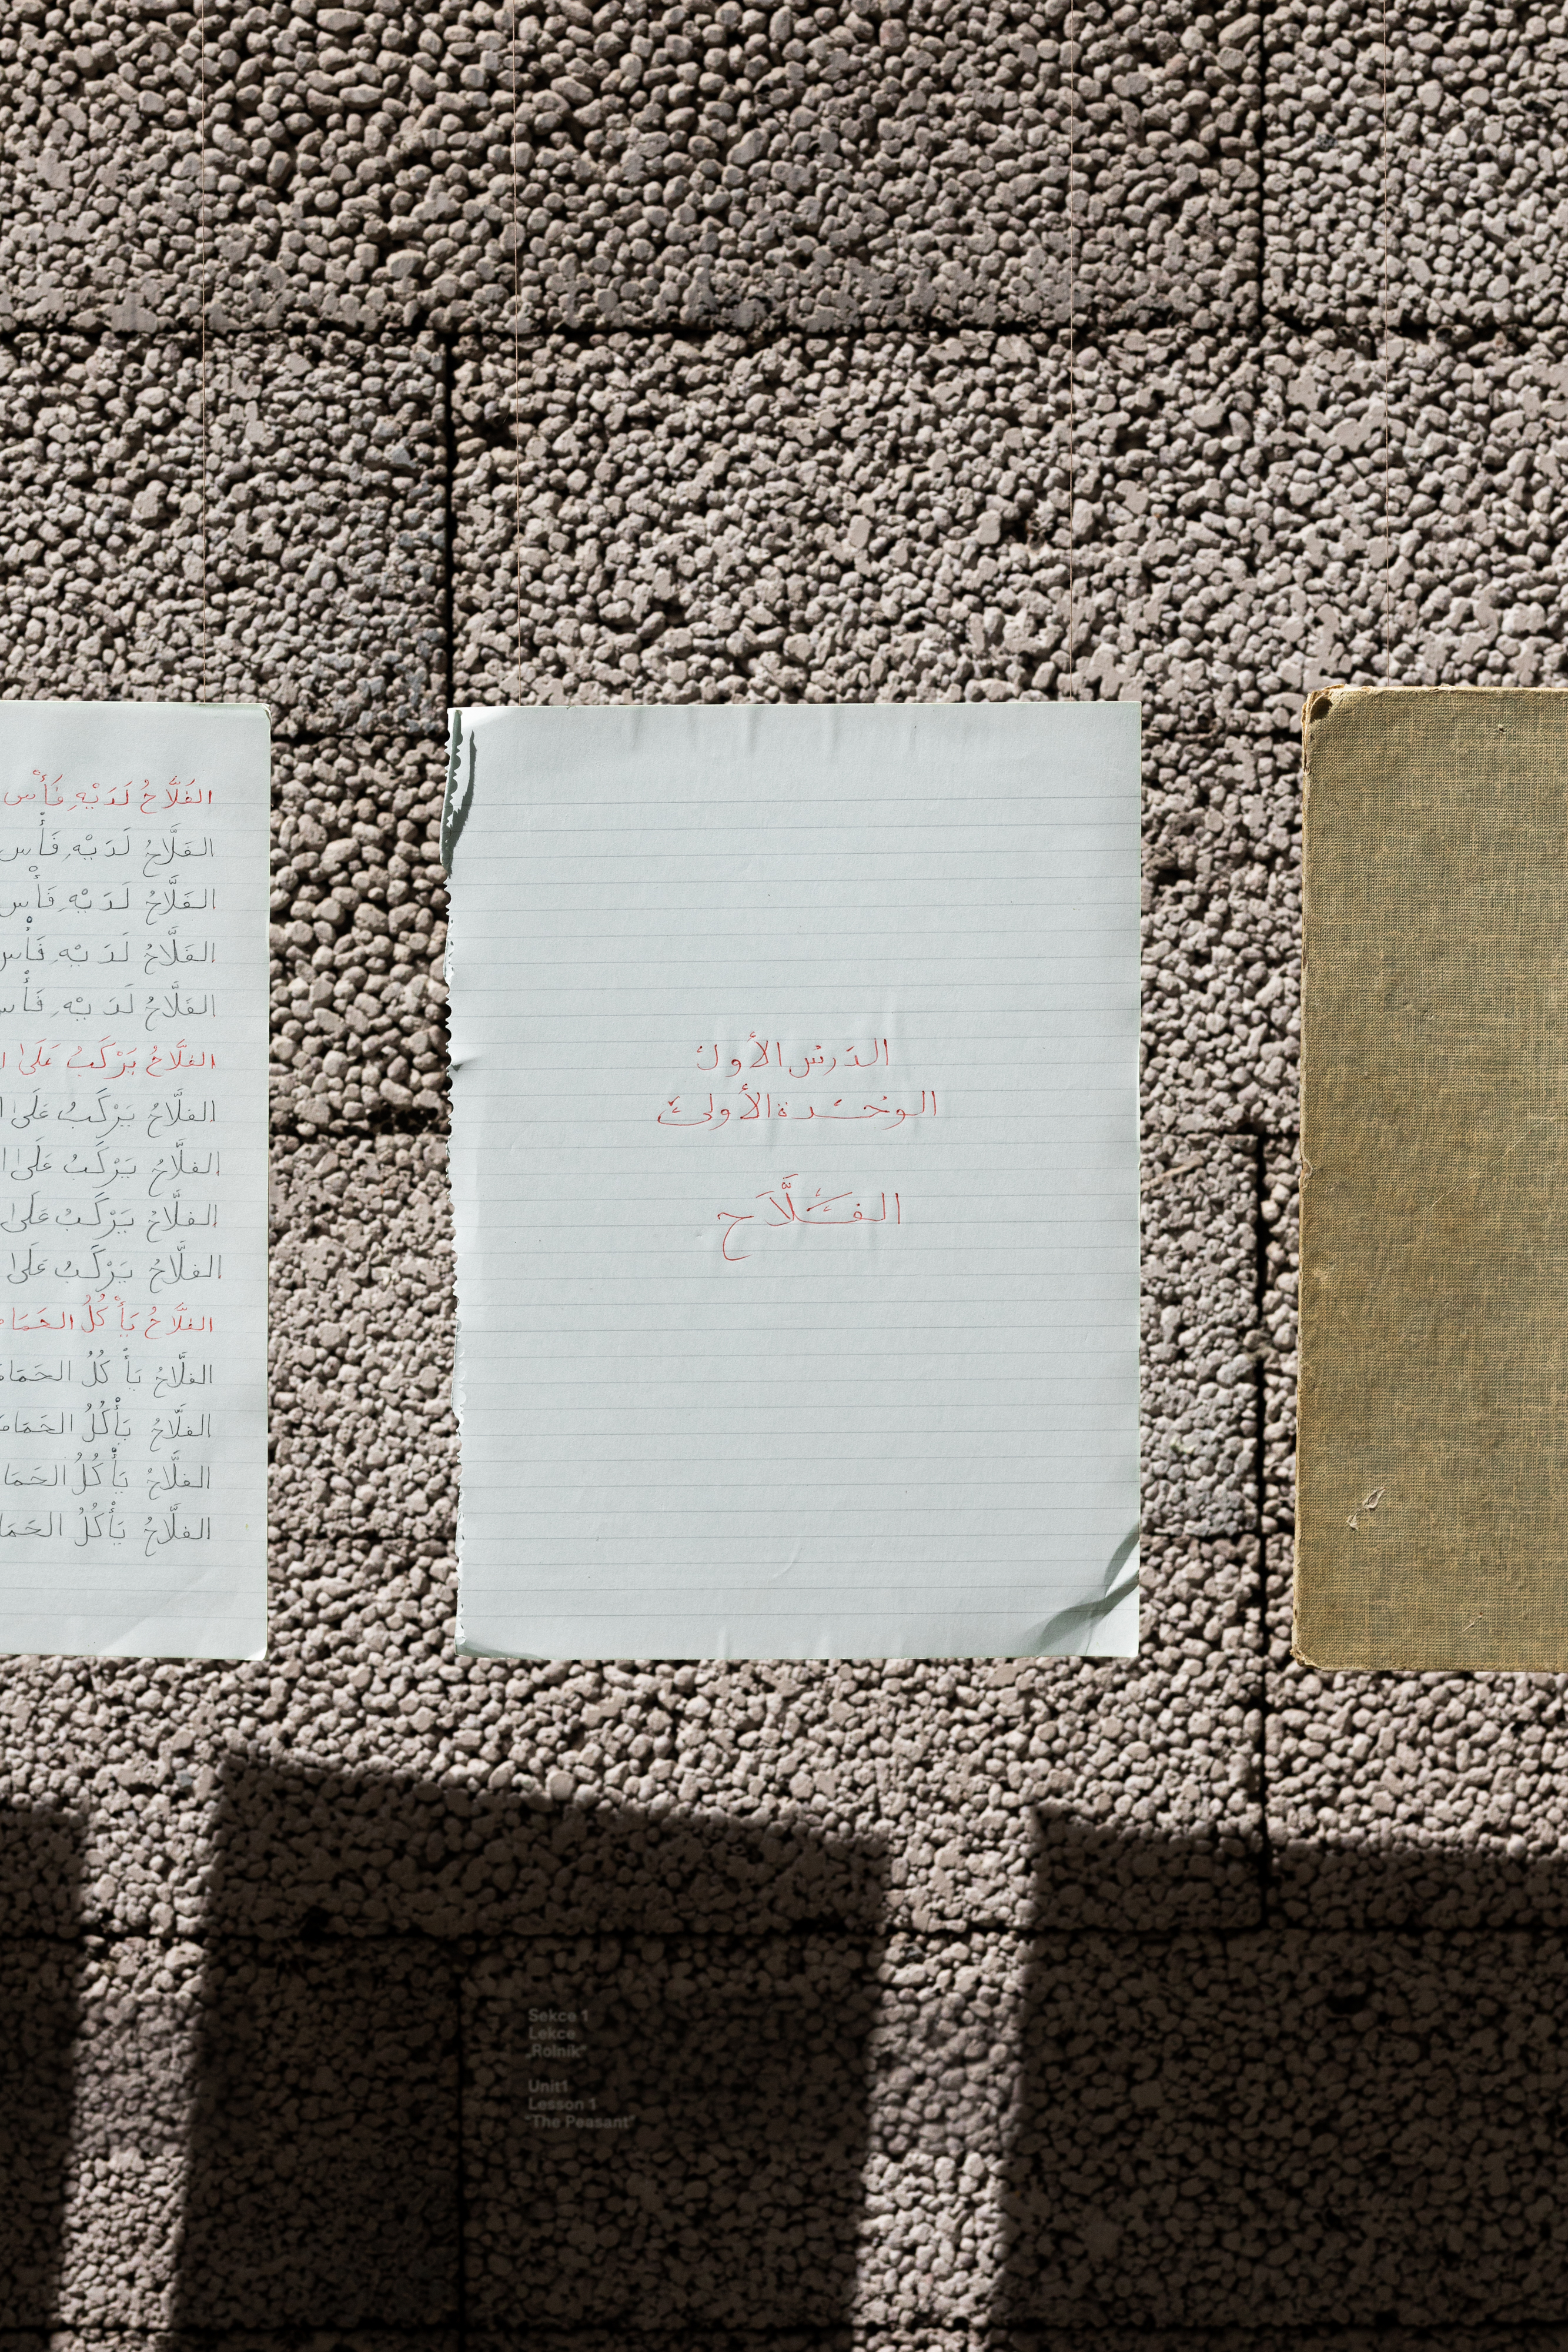 الفَلَّاحُ لَدَيْهِ فَأْس
الفَلَّاحُ لَدَيْهِ فَأْس
الفَلَّاحُ لَدَيْهِ فَأْس
الفَلَّاحُ لَدَيْهِ فَأْس
الفَلَّاحُ لَدَيْهِ فَأْس
الفلَّاحُ يَرْكَبُ عَلَىٰ
الفلَّاحُ يَرْكَبُ عَلَىٰ
الفلَّاحُ يَرْكَبُ عَلَىٰ
الفلَّاحُ يَرْكَبُ عَلَىٰ
الفلَّاحُ يَرْكَبُ عَلَىٰ
الفلَّاحُ يَأْكُلُ
الفلَّاحُ يَأْكُلُ
الفلَّاحُ يَأْكُلُ
الفلَّاحُ يَأْكُلُ
الفلَّاحُ يَأْكُلُ
الدَرس الأول
الوحدة الأولى
الفَلَّاَح
Sekce 1
Lekce
„Rolník"
Unit1
Lesson 1
"The Peasant"